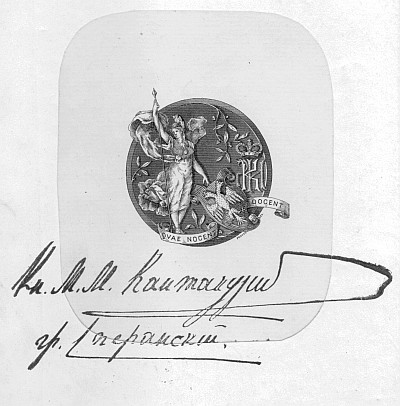 QUAE NOCENT DOCENT
Кн. М. М. Кантакузин
гр. Сперанскій.